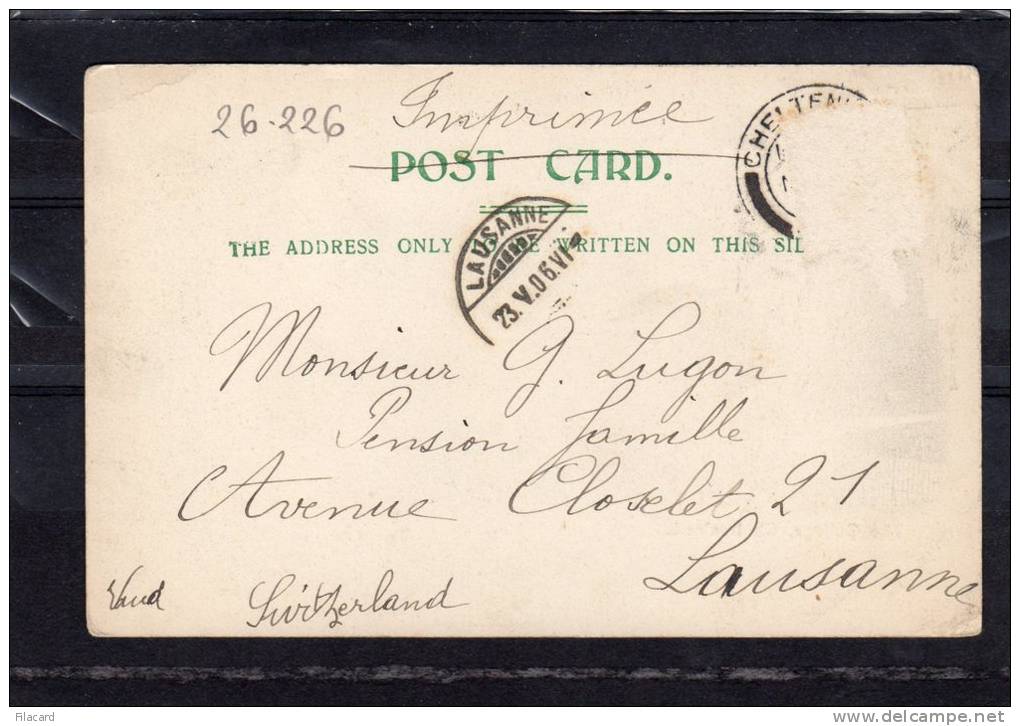 26-226
Imprimée
POST CARD.
CHELTEN
LAUSANNE
23.V.06.VI
THE ADDRESS ONLY TO BE WRITTEN ON THIS SID
Monsieur G. Lugon
Pension famille
Avenue Closelet 21
Lausanne
Vaud Switzerland
Filacard
www.delcampe.net